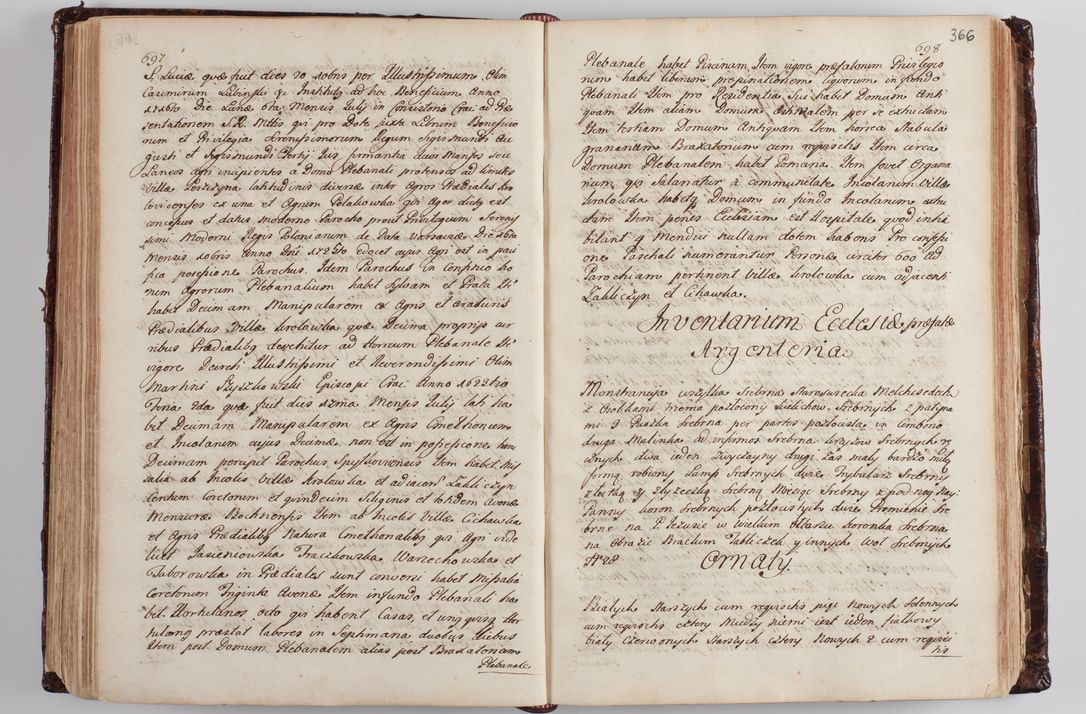 697
S. Luciæ quæ fuit dies 20 8obris per Illustrissimum Olim
Casimirum Lubinski &c Institutus ad hoc Beneficium Anno
Die Lunæ 6ta Mensis Julij in Consistorio Crac: ad Præ
sentationem S.R. Mttis qui pro Dote juxta Librum Beneficio
rum et Privilegia Serenissimorum Regum Sigismundi Au
gusti et Sigismundi Tertij Jus firmantia duos Mansos seu
Laneos agri incipientes a Domo Plebanali protensos ad limites
Villæ Leszczyna latitudinis diversæ inter Agros Prædiales
ex una et Agrum Polakowska qui Ager dictus est
concessus et datus moderno Parocho prout Privilegium Serenis
simi Moderni Regis Poloniarum de Data Varsaviæ Die
Mensis 8obris Anno Dni edocet cujus Agri est in paci
fica possessione Parochus. Idem Parochus in confinio bo
num Agrorum Plebanalium habet sylvam et Prata It'
habet Decimam Manipularem ex Agris et
Prædialibus Villæ Krolowka quæ Decima proprijs cur
ribus Prædialibus devehitur ad Horreum Plebanale It'
vigore Decreti Illustrissimi et Reverendissimi Olim
Martini Szyszkowski Episcopi Crac: Anno
Feria 2da quæ fuit dies Mensis Julij lati ha
bet Decimam Manipularem ex Agris Cmethonum
et Incolarum cujus Decimæ non est in possessione
Decimam percipit Parochus Item habet Mis
salia ab Incolis Villæ Krolowka et adjacen: Zakliczyn
Centum Coretorum et quindecim Siliginis et totidem Avenæ
Mensuræ Bochnensis Item ab Incolis Villæ Cichawka
et Agris Prædialibus Natura Cmethonalibus qui Agri vide
licet Jasieniowska Traczkowska Warzechowska et
Taborowska in Prædiales sunt conversi habet Missalia
Coretorum Triginta Avenæ Item in fundo Plebanali ha
bet Hortulanos octo qui habent Casas, et unusquisque Hor
tulanus præstat labores in Septimana duobus diebus
Item post Domum Plebanalem alias post Braxatorium
Plebanale
366
698
Plebanale habet Piscinam Item vigore præfatorum Privilegio
rum habet liberam propinationem liquorum in fundo
Plebanali Item pro Residentia Sui habet Domum Anti
quam Item aliam Domum per se extructam
Item tertiam Domum Antiquam Item horrea Stabula
granarium Braxatorium cum requisitis Item circa
Domum Plebanalem habet Pomaria Item fovet Organa
rium qui Salariatur à communitate Incolarum Villæ
Krolowka habetque Domum in fundo Incolarum extru
ctam Item penes Ecclesiam est Hospitale quod inha
bitant 9 Mendici nullam dotem habens Pro confessi
one Paschali numerantur Personæ circiter 600 Ad
Parochiam pertinent Villæ Krolowka cum adjacenti
Zakliczyn et Cichawka.
Inventarium Ecclesiæ præfatæ
Argenteria
Monstrancya wszytka Srebrna Staroswiecka Melchisedech
z Osobami niema pozłocony Kielichow Srebrnych z patyna
mi 9 Puszka Srebrna per partes pozłocista in Ciborio
druga Malinka ad infirmos Srebrna krzyżow Srebrnych rę
cznych dwa ieden zwyczayny drugi zas mały bardzo miłą
formą robiony Lamp Srebrnych dwie Trybularz Srebrny
z łutką y łyzeczką Srebrną Miesiąc Srebrny z pod nog Nay:
Panny Koron Srebrnych pozłocistych dwie Promienie Sre
brne na P. Jezusie w wielkim Ołtarzu Koronka Srebrna
na Obrazie Bractwa Tabliczek y innych Wot Srebrnych
No 28
Ornaty.
Białych Starszych cum requisitis pięc Nowych Solennych
cum requisitis cztery Między niemi iest ieden fiałkowy
biały Czerwonych Starszych cztery Nowych 2 cum requisi
tis